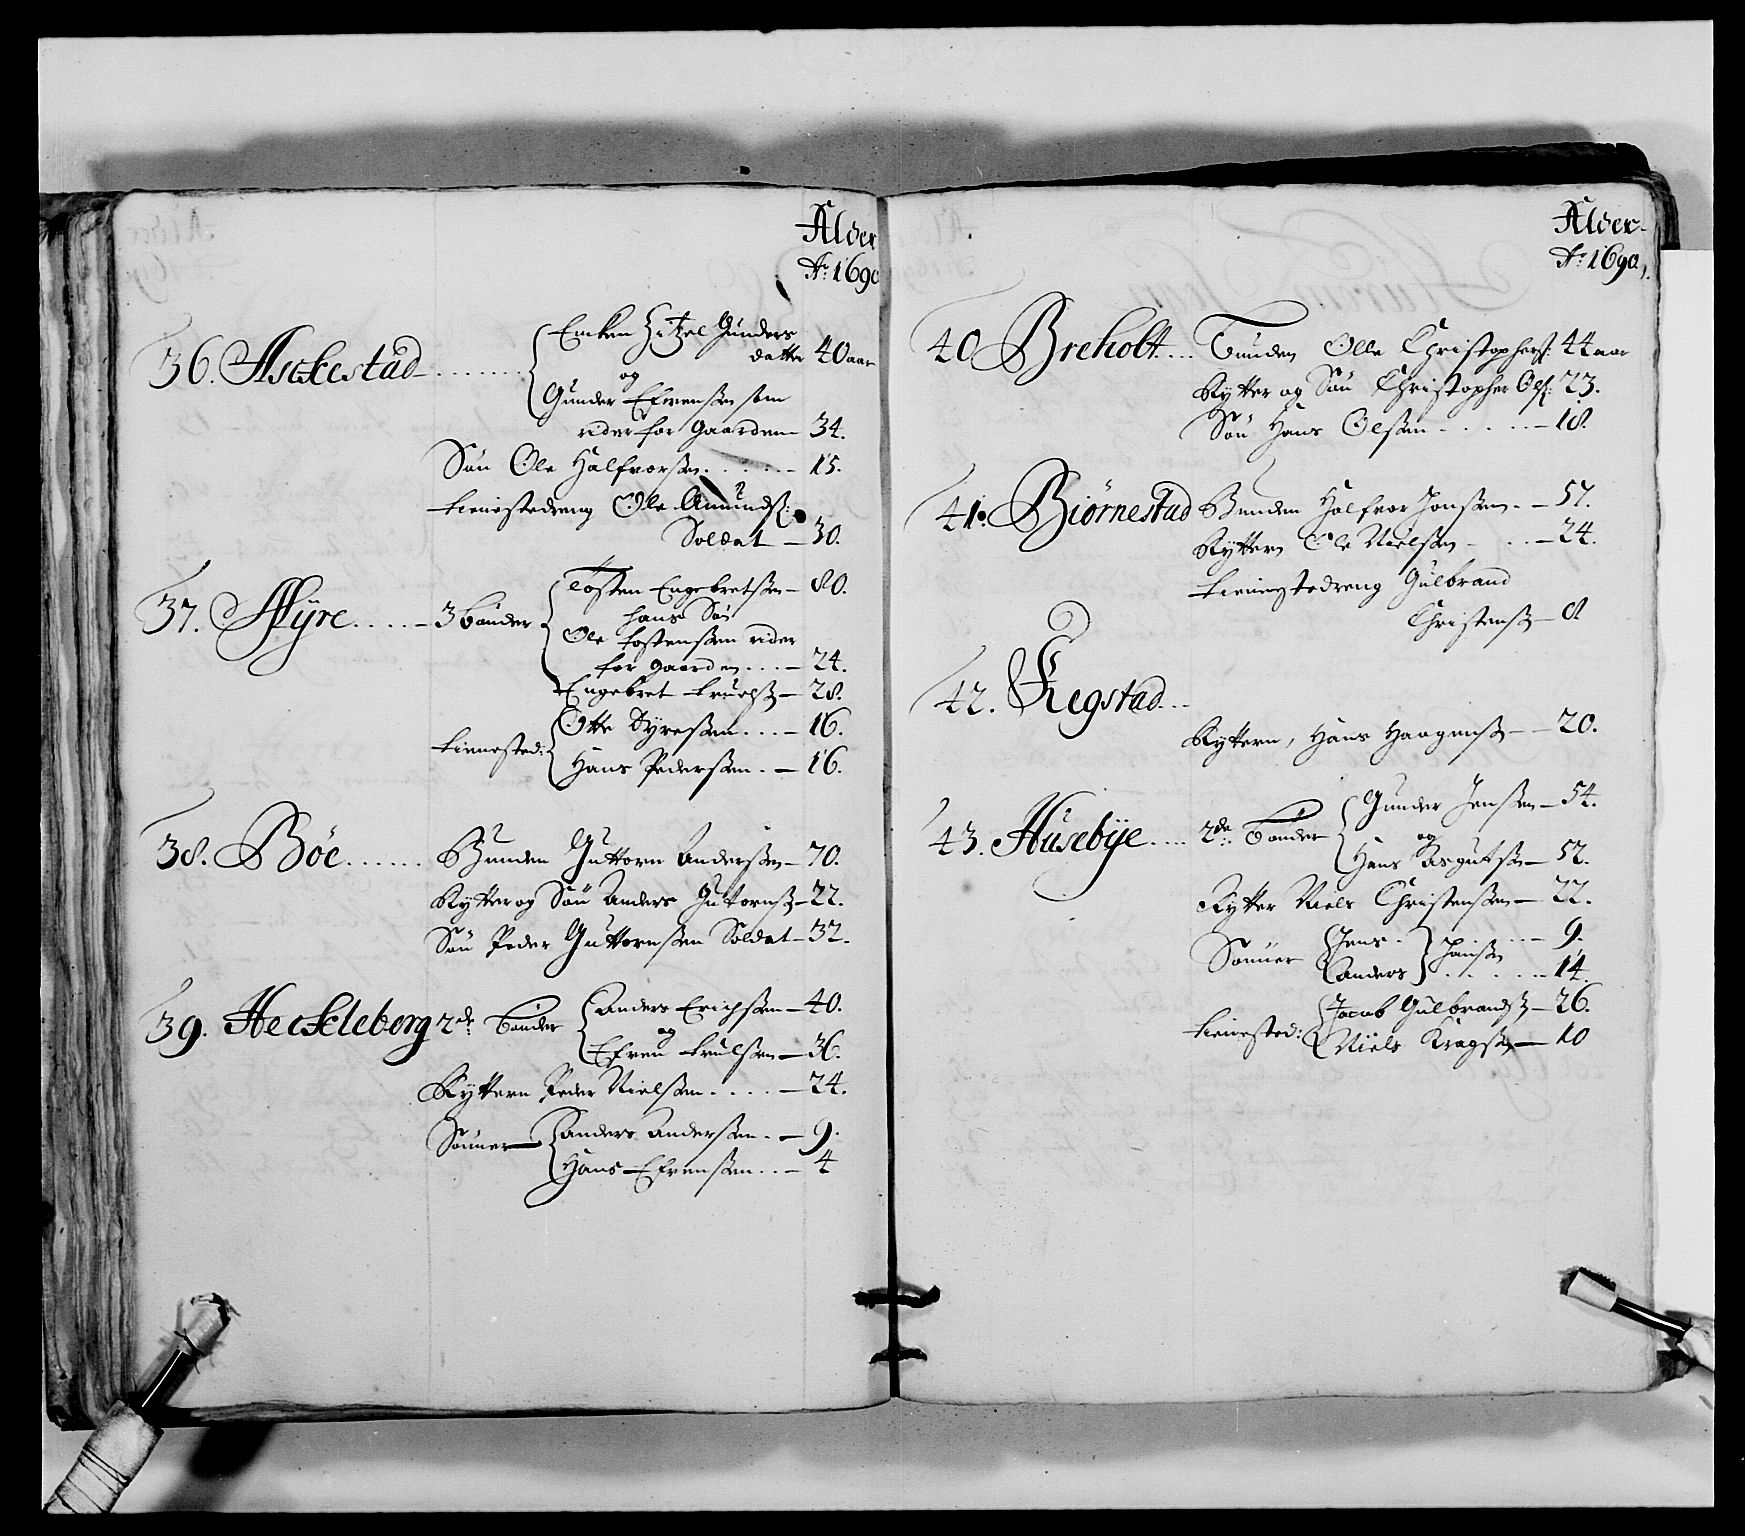 Alder
Aº 1690
36. Askestad
Encken Sitzel Gunders
datter 40 aar
og
Gunder Efvensen som
rider for Gaarden 34.
Søn Ole Halfvorsen 15.
tienestedreng Ole Amunds:
Soldat 30.
37. Myre 3 bønder
Tosten Engebretsen 80.
hans Søn
Ole Tostensen rider
for gaarden 24.
Engebret Truels 28.
tienested:
Otte Dyresen 16.
Hans Pedersen 16.
38. Bøe Bunden Guttorn Andersen 70.
Rytter og Søn Anders Gutorns 22.
Søn Peder Guttornsen Soldat 32.
39. Heckleberg 2de bønder
Anders Erichsen 40.
og
Efven Trulsen 36.
Ryttern Peder Nielsen 24.
Sønner
Anders Andersen 9.
Hans Efvensen 4
Alder
Aº 1690.
40 Breholt Bunden Olle Christophers: 44 aar
Rytter og Søn Christopher Ols: 23.
Søn Hans Olsen 18.
41. Biørnestad Bunden Halfvor Jonsen 57.
Ryttern Ole Nielsen 24.
tienestedreng Gulbrand
Christens 8
42. Regstad
Ryttern, Hans Haagens 20.
43. Husebye 2de bønder
Gunder Jensen 54.
og
Hans Asgutsen 52.
Rytter Niels Christensen 22.
Sønner
Jens 9.
Hansen
Anders 14
tienested:
Jacob Gulbrands 26.
Niels Krags 10